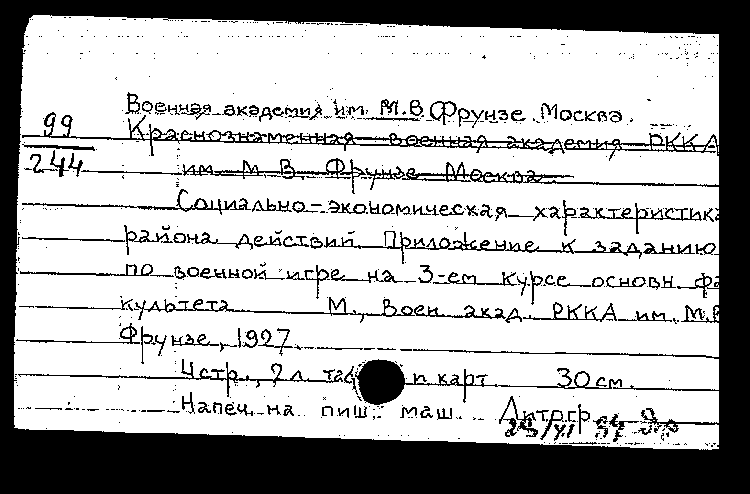 Военная академия им. М.В Фрунзе. Москва.
99
Краснознаменная военная академия РККА
244
им. М. В. Фрунзе Москва
Социально-экономическая характеристика
района действий. Приложение к заданию
по военной игре на 3-ем курсе основн. фа
культета М., Воен. акад. РККА им. М.В
Фрунзе, 1927.
4 стр., 2 л. таб п карт 30 см.
Напеч. на пиш. маш. Литогр.